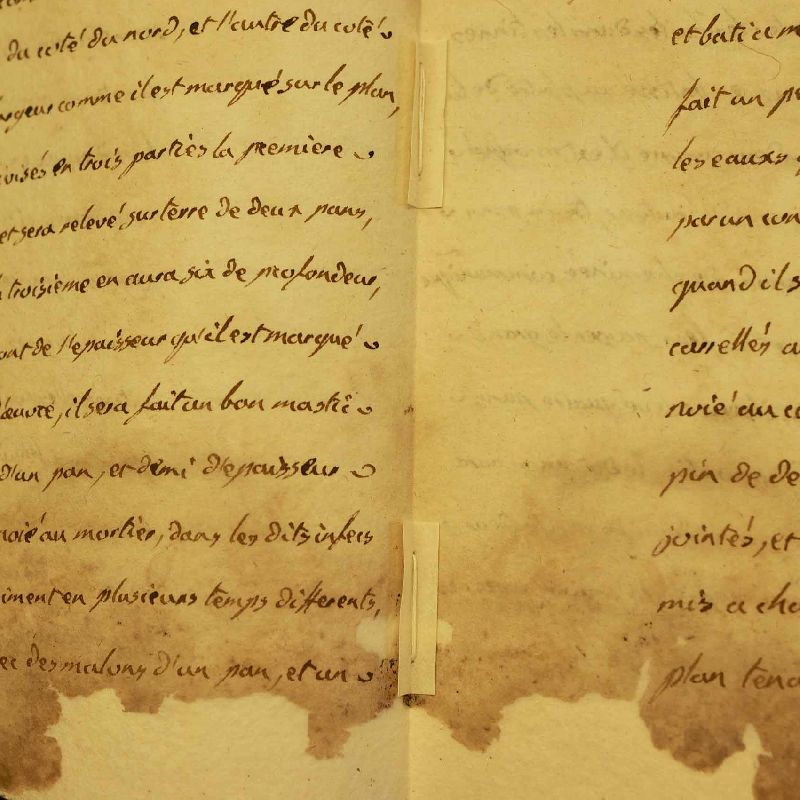 du coté du nord, et l'autre du coté
largeur comme il est marqué sur le plan,
visés en trois partiès la premiere
et sera relevé sur terre de deux pans,
troisième en aura six de profondeur,
ont de l'epaisseur qu'il est marqué
d'œuvre, il sera fait un bon masti
d'un pan, et demi d'epaisseur
noié au mortier, dans les dits
iment en plusieurs temps differents,
des malons d'un pan, et un
et bati a m
fait un p
les eaux
par un con
quand il s
carrellés a
noié au co
pin de de
jointés, et
mis a cha
plan tena